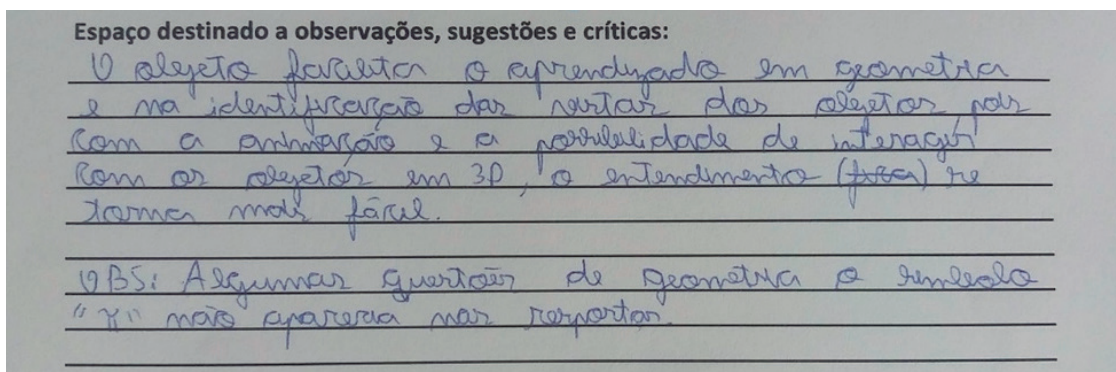 Espaço destinado a observações, sugestões e críticas:
O objeto facilita o aprendizado em geometria
e na identificação das vistas dos objetos pois
com a animação e a possibilidade de interagir
com os objetos em 3D, o entendimento (fica) se
torna mais fácil.
OBS: Algumas questões de geometria o símbolo
"π" não aparecia nas respostas.